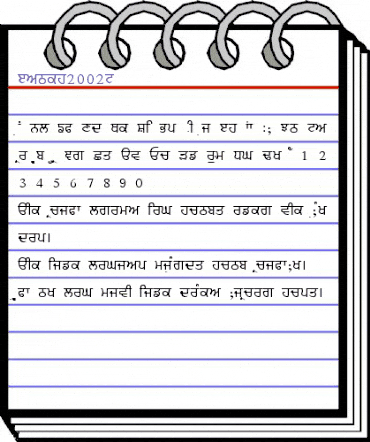 ੲਅਠਕਹ2002ਟ
ਨਲ ਡਫ ਣਦ ਥਕ ਸ਼ਿ ਭਪ ੀ ਜ ੲਹ ਾਂ :; ਝਠ ਟਅ
ਵਗ ਛਤ ੳਵ ਓਚ ੜਡ ਰੁਮ ਧਘ ਢਖ 1 2
3 4 5 6 7 8 9 0
ਚਜਫਾ ਲਗਰਮਅ ਰਿਘ ਹਚਠਬਤ ਰਡਕਗ ਵੀਕ
ਦਰਪ।
ਜਿਡਕ ਲਰਘਜਅਪ ਮਜ਼ੰਗਦਤ ਹਚਠਬ ੍ਰਚਜਫਾ;ਖ।
੍ਰਫਾ ਠਖ ਲਰਘ ਮਜਵੀ ਜਿਡਕ ਦਰੰਕਅ ਹਚਪਤ।